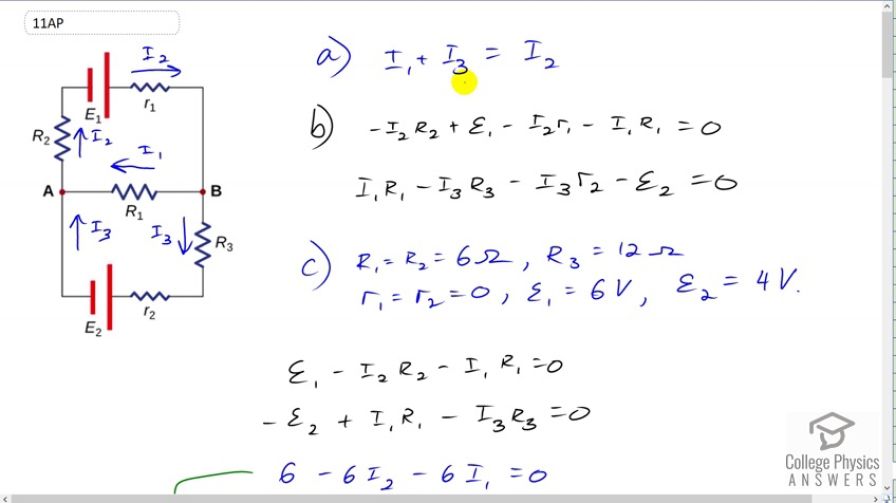 11AP
I₂
E₁
r₁
R₂
I₂
I₁
A
B
R₁
I₃
I₃
R₃
E₂
r₂
a) I₁ + I₃ = I₂
b) -I₂R₂ + ε₁ - I₂r₁ - I₁R₁ = 0
I₁R₁ - I₃R₃ - I₃r₂ - ε₂ = 0
c) R₁ = R₂ = 6Ω, R₃ = 12Ω
r₁ = r₂ = 0, ε₁ = 6V, ε₂ = 4V.
ε₁ - I₂R₂ - I₁R₁ = 0
-ε₂ + I₁R₁ - I₃R₃ = 0
6 - 6I₂ - 6I₁ = 0
College Physics
ANSWERS